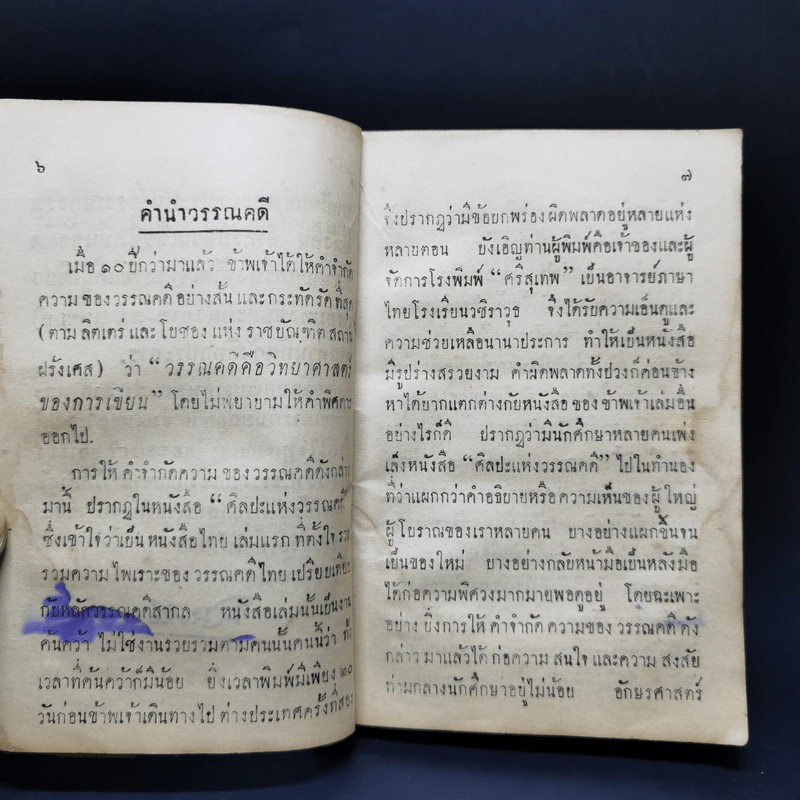 ๖
คำนำวรรณคดี
เมื่อ ๑๐ ปีกว่ามาแล้ว ข้าพเจ้าได้ให้คำจำกัด
ความ ของวรรณคดี อย่างสั้น และกระทัดรัดที่สุด
(ตาม ลิตเตร์ และ โยซอง แห่ง ราชบัณฑิต สถาน
ฝรั่งเศส) ว่า “วรรณคดีคือวิทยาศาสตร์
ของการเขียน” โดยไม่พยายามให้คำพิศดาร
ออกไป.
การให้ คำจำกัดความ ของ วรรณคดีดังกล่าว
มานี้ ปรากฏในหนังสือ “ศิลปะแห่งวรรณคดี”
ซึ่งเข้าใจว่าเป็น หนังสือไทย เล่มแรก ที่ตั้งใจ รวบ
รวมความ ไพเราะของ วรรณคดีไทย เปรียบเทียบ
กับหลักวรรณคดีสากล หนังสือเล่มนั้นเป็นงาน
ค้นคว้า ไม่ใช่งานรวบรวมตามคนนั้นคนนี้ว่า ทั้ง
เวลาที่ค้นคว้าก็มีน้อย ยิ่งเวลาพิมพ์มีเพียง ๒๐
วันก่อนข้าพเจ้าเดินทางไป ต่างประเทศครั้งที่สอง
๗
จึงปรากฏว่ามีข้อบกพร่อง ผิดพลาดอยู่หลายแห่ง
หลายตอน บังเอิญท่านผู้พิมพ์คือเจ้าของและผู้
จัดการโรงพิมพ์ “ศรีสุเทพ” เป็นอาจารย์ภาษา
ไทยโรงเรียนวชิราวุธ จึงได้รับความเอ็นดูและ
ความช่วยเหลือนานาประการ ทำให้เป็นหนังสือ
มีรูปร่างสรวยงาม คำผิดพลาดทั้งปวงก็ค่อนข้าง
หาได้ยากแตกต่างกับหนังสือ ของ ข้าพเจ้าเล่มอื่น
อย่างไรก็ดี ปรากฏว่ามีนักศึกษาหลายคนเพ่ง
เล็งหนังสือ “ศิลปะแห่งวรรณคดี” ไปในทำนอง
ที่ว่าแผกกว่าคำอธิบายหรือ ความเห็นของ ผู้ ใหญ่
ผู้ โบราณของเราหลายคน บางอย่างแผกขึ้นจน
เป็นของใหม่ บางอย่างกลับหน้ามือเป็นหลังมือ
ได้ก่อความพิศวงมากมายพอดูอยู่ โดยฉะเพาะ
อย่าง ยิ่งการให้ คำจำกัด ความของ วรรณคดี ดัง
กล่าว มาแล้วได้ ก่อความ สนใจ และความ สงสัย
ท่ามกลางนักศึกษาอยู่ไม่น้อย อักษรศาสตร์